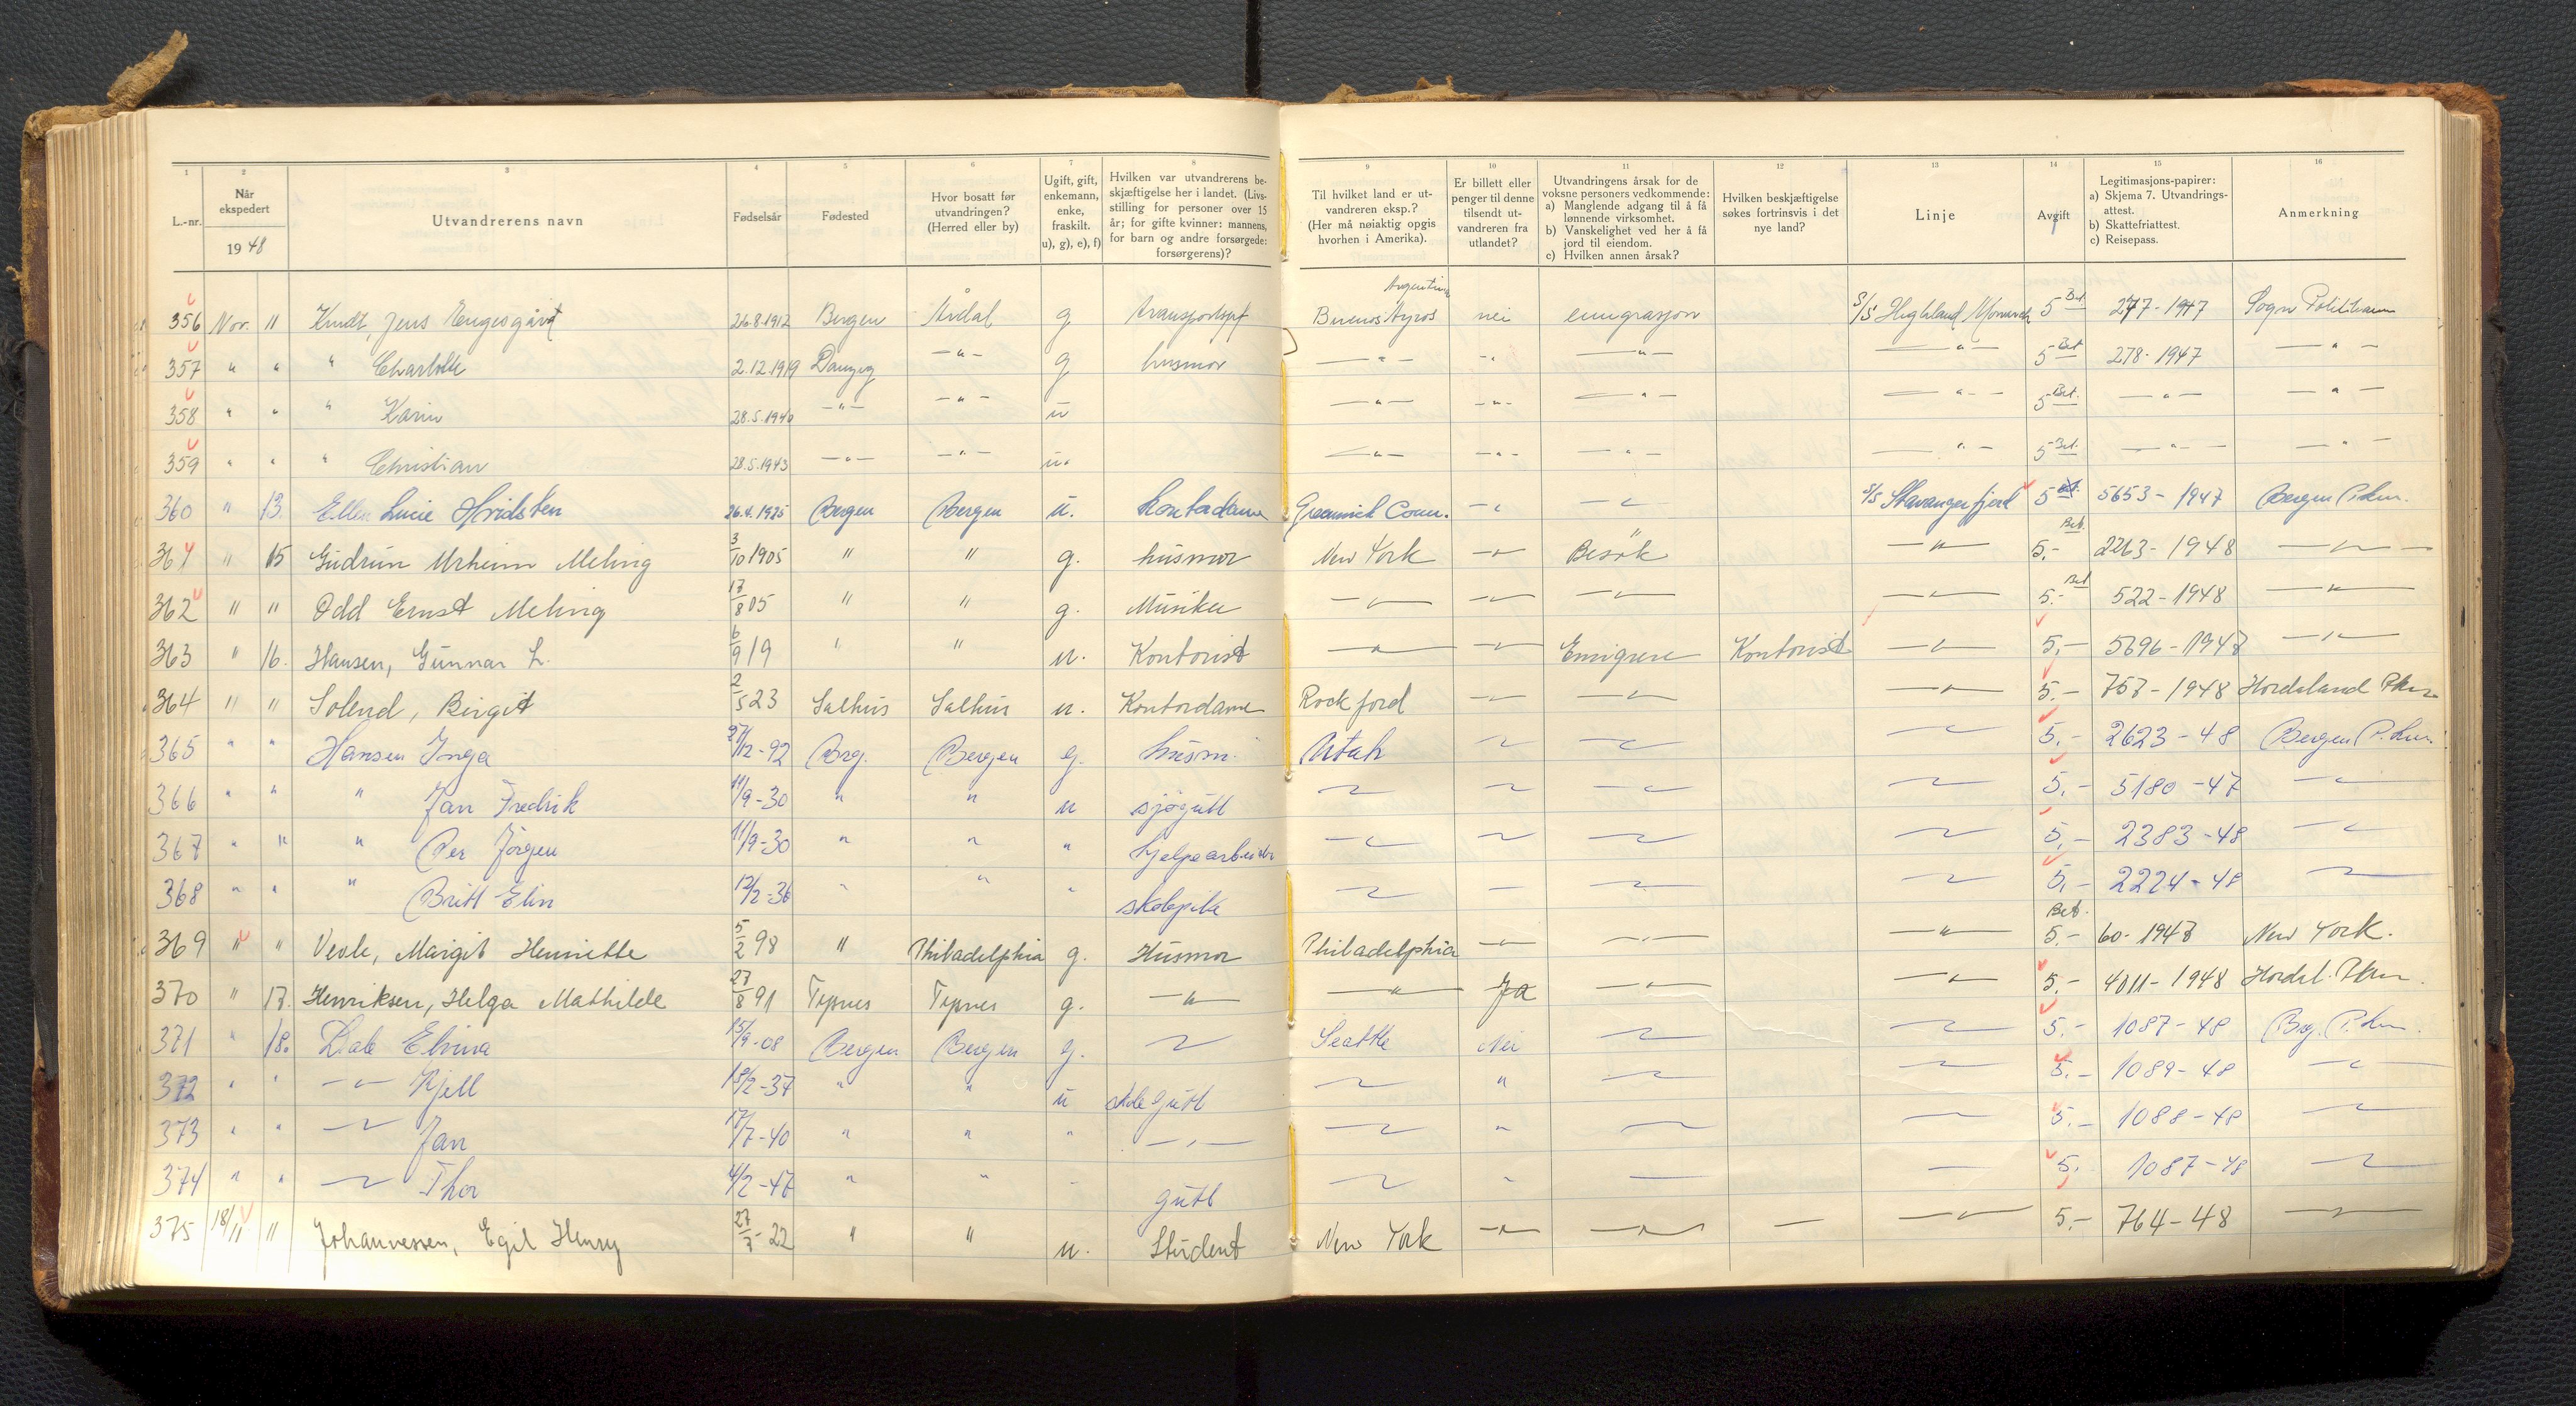 1 2 3 4 5 6 7 8 9 10 11 12 13 14 15 16
L.-nr.
Når ekspedert
1948
Utvandrerens navn
Fødselsår
Fødested
Hvor bosatt før utvandringen? (Herred eller by)
Ugift, gift, enkemann, enke, fraskilt. u), g), e), f)
Hvilken var utvandrerens beskjæftigelse her i landet. (Livsstilling for personer over 15 år; for gifte kvinner: mannens, for barn og andre forsørgede: forsørgerens)?
Til hvilket land er utvandreren eksp.? (Her må nøiaktig opgis hvorhen i Amerika).
Er billett eller penger til denne tilsendt utvandreren fra utlandet?
Utvandringens årsak for de voksne personers vedkommende:
a) Manglende adgang til å få lønnende virksomhet.
b) Vanskelighet ved her å få jord til eiendom.
c) Hvilken annen årsak?
Hvilken beskjæftigelse søkes fortrinsvis i det nye land?
Linje
Avgift
Legitimasjons-papirer:
a) Skjema 7. Utvandringsattest.
b) Skattefriattest.
c) Reisepass.
Anmerkning
356 Nov. 11 Kindt, Jens 26.8.1912 Bergen Årdal g Argentina Buenos Ayros nei emigrasjon S/S Highland Monarch 5 Bet 277-1947 Sogn
357 " " " Charlotte 2.12.1919 Danzig -"- g husmor -"- -"- -"- -"- 5 Bet 278-1947 -"-
358 " " " Karin 28.5.1940 -"- -"- u -"- -"- -"- -"- 5 Bet. -"- -"-
359 " " " Christian 28.5.1943 -"- -"- u. -"- -"- -"- -"- 5 Bet. -"- -"-
360 " 13. Ellen Lucie 26.4.1925 Bergen Bergen u. Kontordame Greenwich Conn. -"- -"- S/S Stavangerfjord 5 5653-1947 Bergen P.km.
361 " 15 Gudrun Urheim Meling 3/10 1905 " " g. husmor New York -"- Besøk -"- Bet. 5.- 2263-1948 -"-
362 " " Odd Ernst Meling 17/8 05 " " g. Musiker -"- -"- -"- -"- 5.- Bet 522-1948 -"-
363 " 16. Hansen, Gunnar L. 6/9 19 " " u. Kontorist -"- -"- Emigrere Kontorist -"- 5.- 5696-1948 -"-
364 " " Solend, Birgit 2/5 23 Salhus Salhus u. Kontordame Rockford -"- -"- -"- 5.- 757-1948 Hordaland Pkm.
365 " " Hansen Inga 27/12-92 Brg. Bergen g. husm. Utah -"- -"- -"- 5.- 2623-48 Bergen P.km.
366 " " " Jan Fredrik 11/9-30 " " u sjøgutt -"- -"- -"- -"- 5.- 5180-47 -"-
367 " " " Per Jörgen 11/9-30 " " " hjelpearbeider -"- -"- -"- -"- 5.- 2383-48 -"-
368 " " " Britt Elin 12/2-36 " " " skolepike -"- - -"- -"- 5.- 2224-48 -"-
369 " " Vevle, Margit Henriette 5/2 98 " Philadelphia g. Husmor Philadelphia -"- -"- -"- Bet. 5.- 60-1948 New York.
370 " 17. Henriksen, Helga Mathilde 27/8 91 g. -"- -"- Ja -"- -"- 5.- 4011-1948 Hordal. Pkm.
371 " 18. Dale Elvina 15/9-08 Bergen Bergen g. -"- Seattle Nei -"- -"- 5.- 1087-48 Brg. P.km.
372 " " -"- Kjell 18/2-37 " " u skolegutt -"- " -"- -"- 5.- 1089-48 -"-
373 " " -"- Jan 17/7-40 " " " -"- -"- " - - 5.- 1088-48 -"-
374 " " -"- Thor 4/2-47 " " - gutt -"- " - - 5.- 1087-48 -"-
375 18/11 " Johannessen, Egil Henry 27/7-22 " " u. Student New York -"- -"- - -"- 5.- 764-48 -"-